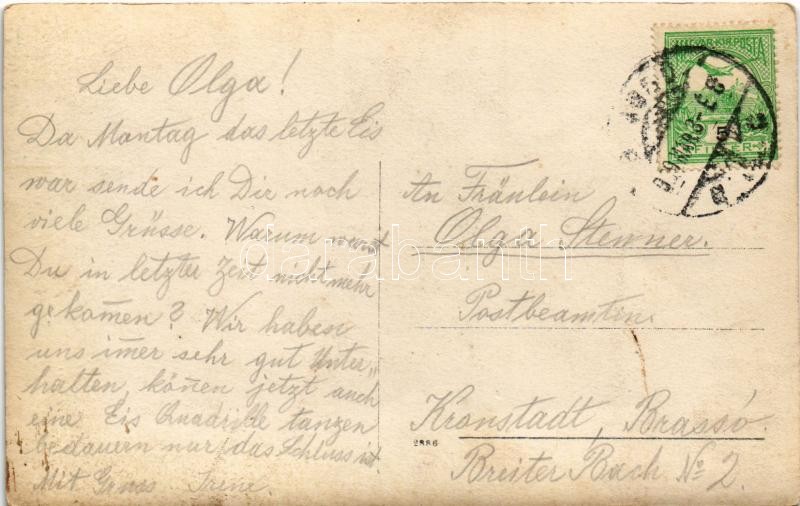 Liebe Olga!
Da Montag das letzte Eis
war sende ich Dir noch
viele Grüsse. Warum warst
Du in letzter Zeit nicht mehr
gekom̄en? Wir haben
uns im̄er sehr gut Unter„
halten, kön̄en jetzt auch
eine Eis Quadrille tanzen
bedauern nur das Schluss ist.
Mit Gruss Irene.
MAGYAR KIR. POSTA
FILLER
An Fräulein
Olga Stenner.
Postbeamtin.
Kronstadt, Brassó.
Breiter Bach № 2.
2886
darabanth